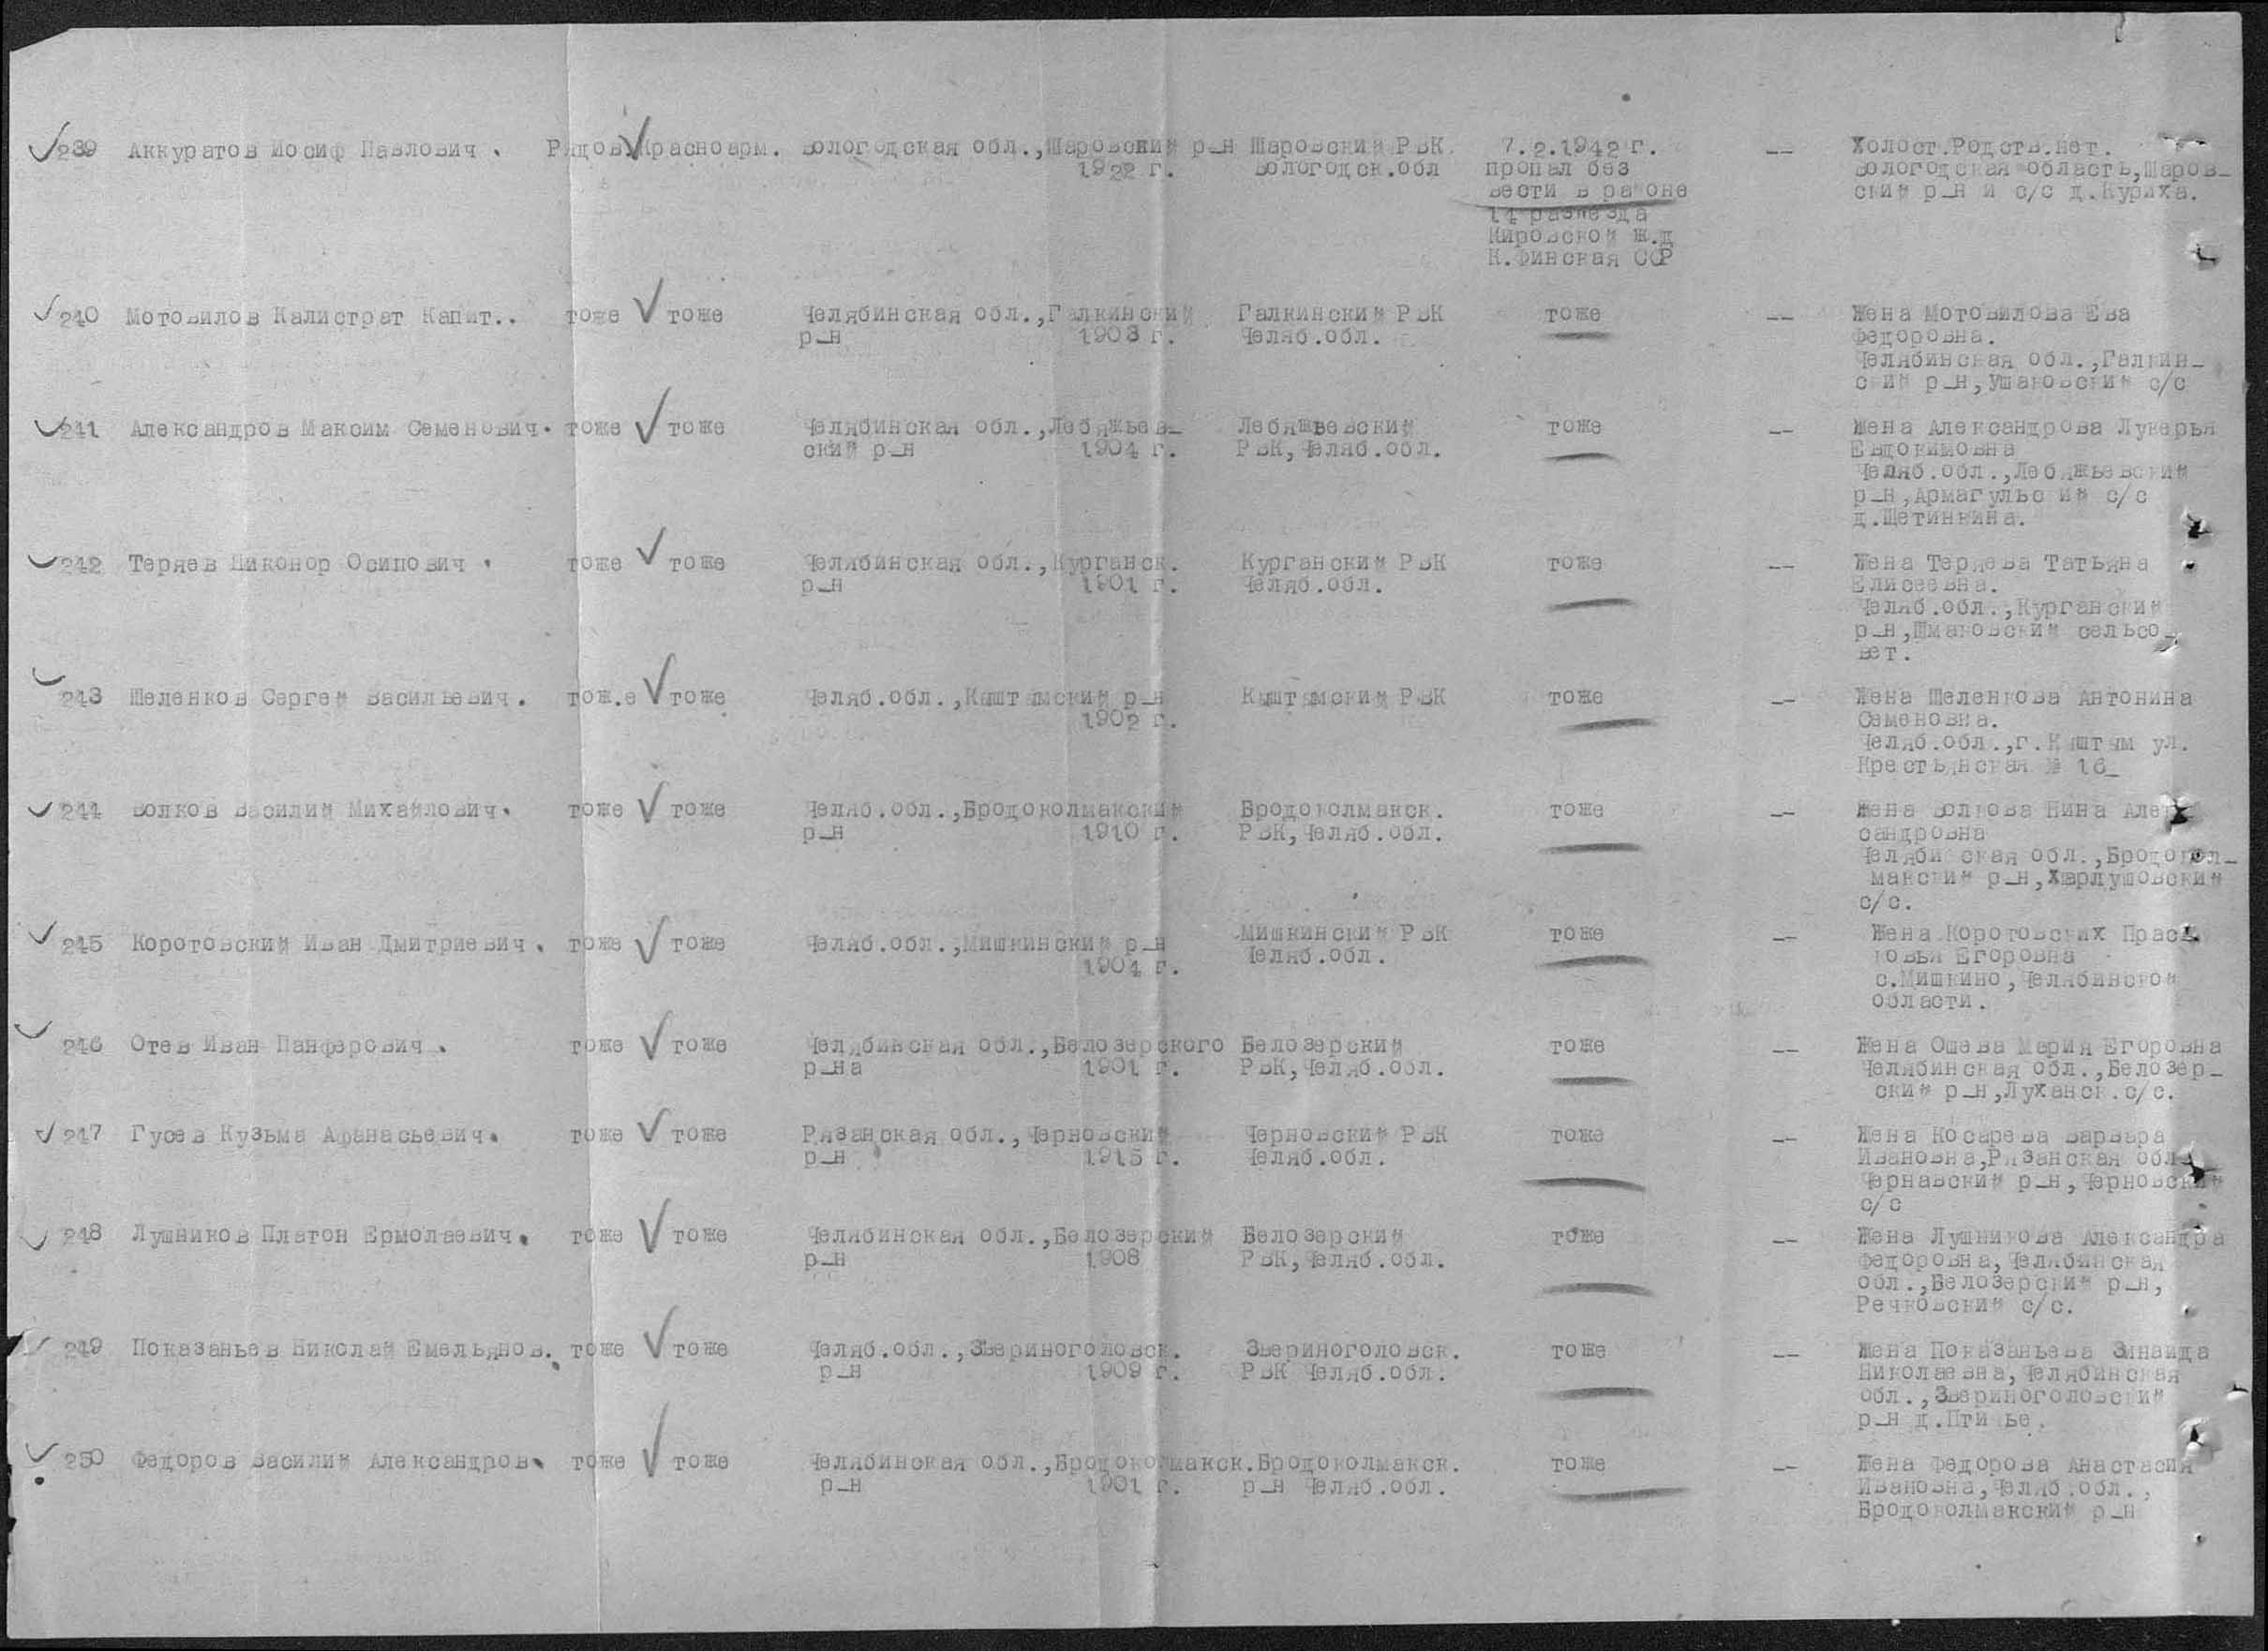 239 Аккуратов Иосиф Павлович. Рядов. Красноарм. Вологодская обл.,Шаровский р-н Шаровский РВК 7.2.1942 г. -- Холост.Родств.нет.
1922 г. Вологодск.обл пропал без Вологодская область,Шаров-
вести в районе ский р-н и с/с д.Куриха.
14 разъезда
Кировской ж.д
К.Финская ССР
240 Мотовилов Калистрат Капит.. тоже тоже Челябинская обл.,Галкинский Галкинский РВК тоже -- Жена Мотовилова Ева
р-н 1903 г. Челяб.обл. Федоровна.
Челябинская обл.,Галкин-
ский р-н,Ушаковский с/с
241 Александров Максим Семенович. тоже тоже Челябинская обл.,Лебяжьев- Лебяжьевский тоже -- Жена Александрова Лукерья
ский р-н 1904 г. РВК,Челяб.обл. Евдокимовна
Челяб.обл.,Лебяжьевский
р-н,Армагульс ий с/с
д.Щетинкина.
242 Теряев Никонор Осипович. тоже тоже Челябинская обл.,Курганск. Курганский РВК тоже -- Жена Теряева Татьяна
р-н 1901 г. Челяб.обл. Елисеевна.
Челяб.обл.,Курганский
р-н,Шмаковский сельсо-
вет.
243 Шеленков Сергей Васильевич. тож.е тоже Челяб.обл.,Кыштымский р-н Кыштымский РВК тоже -- Жена Шеленкова Антонина
1902 г. Семеновна.
Челяб.обл.,г.Кыштым ул.
Крестьянская № 16_
244 Волков Василий Михайлович. тоже тоже Челяб.обл.,Бродоколмакский Бродоколмакск. тоже -- Жена Волкова Нина Алек
р-н 1910 г. РВК,Челяб.обл. сандровна
Челяби ская обл.,Бродокол-
макский р-н,Харлушовский
с/с.
245 Коротовский Иван Дмитриевич. тоже тоже Челяб.обл.,Мишкинский р-н Мишкинский РВК тоже -- Жена Коротовских Прас
1904 г. Челяб.обл. ковья Егоровна
с.Мишкино,Челябинской
области.
246 Отев Иван Панферович. тоже тоже Челябинская обл.,Белозерского Белозерский тоже -- Жена Ошева Мария Егоровна
р-на 1901 г. РВК,Челяб.обл. Челябинская обл.,Белозер-
ский р-н,Луханск.с/с.
247 Гусев Кузьма Афанасьевич. тоже тоже Рязанская обл.,Черновский Черновский РВК тоже -- Жена Косарева Варвара
р-н 1915 г. Челяб.обл. Ивановна,Рязанская обл
Чернавский р-н,Черновский
с/с
248 Лушников Платон Ермолаевич. тоже тоже Челябинская обл.,Белозерский Белозерский тоже -- Жена Лушникова Александра
р-н 1908 РВК,Челяб.обл. Федоровна,Челябинская
обл.,Белозерский р-н,
Речковский с/с.
249 Показаньев Николай Емельянов. тоже тоже Челяб.обл.,Звериноголовск. Звериноголовск. тоже -- Жена Показаньева Зинаида
р-н 1909 г. РВК Челяб.обл. Николаевна,Челябинская
обл.,Звериноголовский
р-н д.Птичье.
250 Федоров Василий Александров. тоже тоже Челябинская обл.,Бродоколмакск.Бродоколмакск. тоже -- Жена Федорова Анастасия
р-н 1901 г. р-н Челяб.обл. Ивановна,Челяб.обл.,
Бродоколмакский р-н